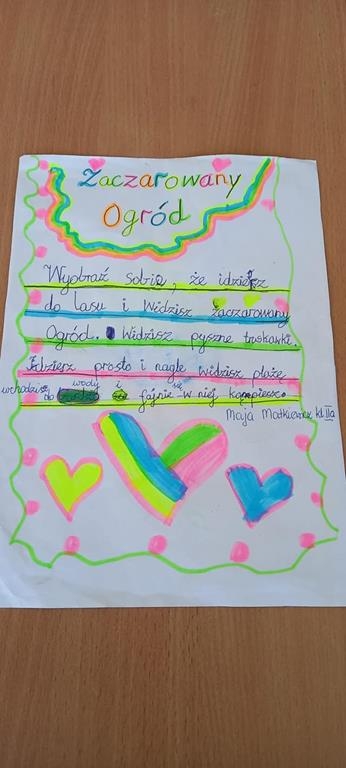 Zaczarowany
Ogród
Wyobraź sobie, że idziesz
do lasu i widzisz zaczarowany
Ogród. Widzisz pyszne truskawki.
Idziesz prosto i nagle widzisz plażę
wchodzisz do wody i fajnie się w niej kąpiesz.
Maja Matkiewicz kl. IIa